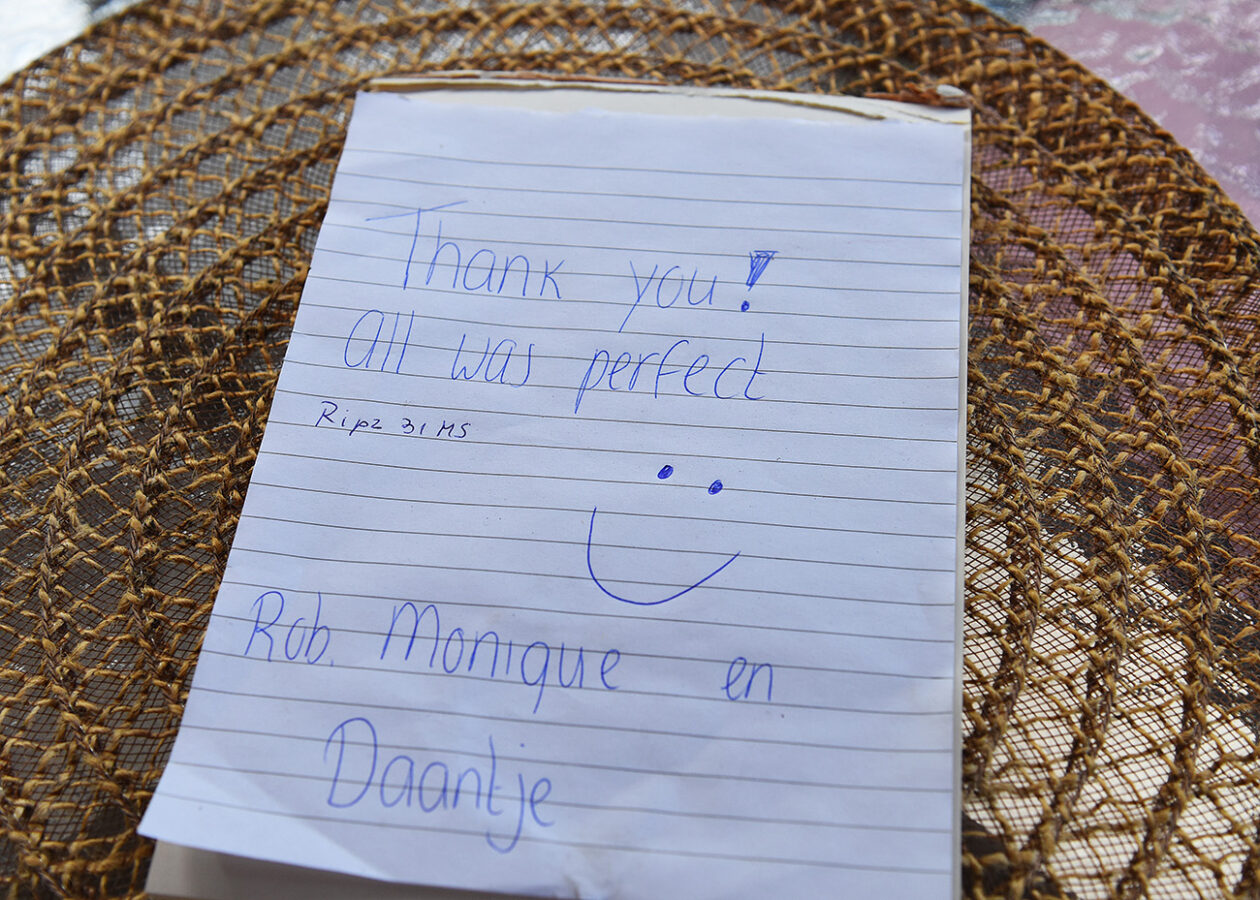 Thank you!
All was perfect
Rob. Monique en
Daantje